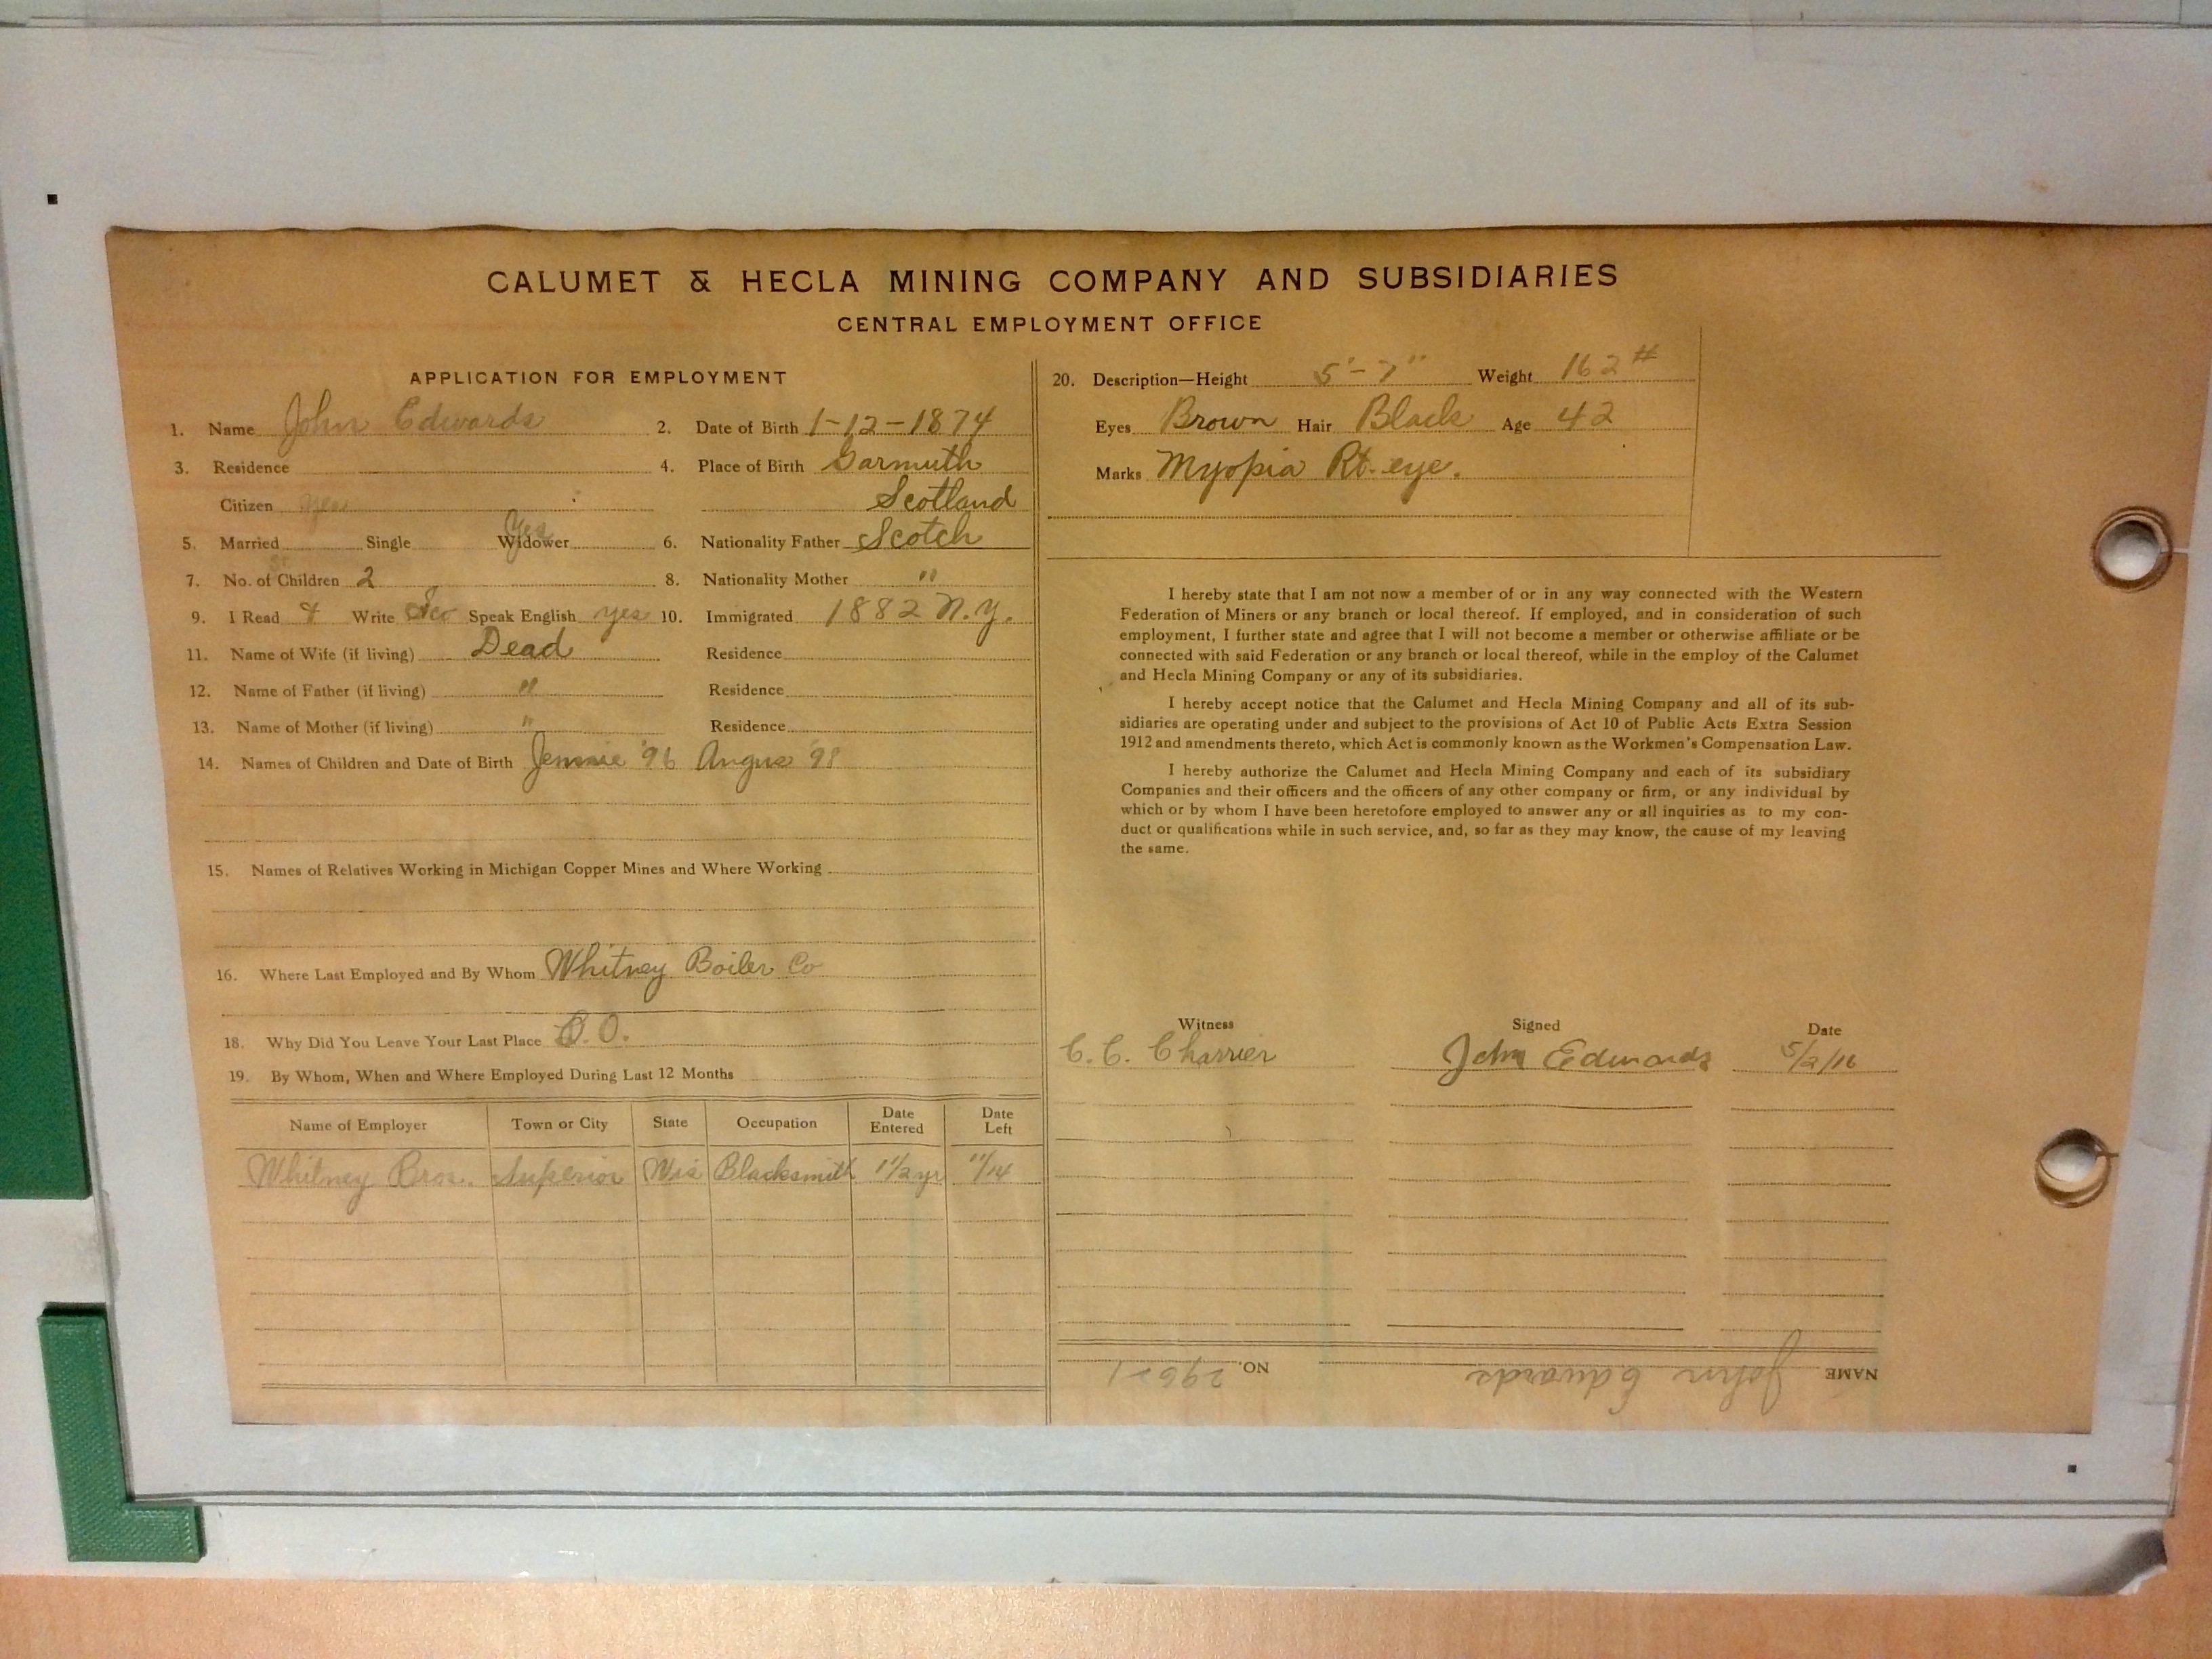 CALUMET & HECLA MINING COMPANY AND SUBSIDIARIES
CENTRAL EMPLOYMENT OFFICE
APPLICATION FOR EMPLOYMENT
1. Name John Edwards 2. Date of Birth 1-12-1874
3. Residence 4. Place of Birth Garmuth
Citizen yes Scotland
5. Married Single Widower Yes 6. Nationality Father Scotch
7. No. of Children 2 8. Nationality Mother "
9. I Read & Write Speak English yes 10. Immigrated 1882 N.Y.
11. Name of Wife (if living) Dead Residence
12. Name of Father (if living) " Residence
13. Name of Mother (if living) " Residence
14. Names of Children and Date of Birth Jennie '96 Angus '98
15. Names of Relatives Working in Michigan Copper Mines and Where Working
16. Where Last Employed and By Whom Whitney Boiler Co
18. Why Did You Leave Your Last Place O.O.
19. By Whom, When and Where Employed During Last 12 Months
Name of Employer Town or City State Occupation Date Entered Date Left
Whitney Bros. Superior Wis Blacksmith 1 1/2 yr 11/14
20. Description—Height 5'-7" Weight 162#
Eyes Brown Hair Black Age 42
Marks Myopia Rt. eye.
I hereby state that I am not now a member of or in any way connected with the Western
Federation of Miners or any branch or local thereof. If employed, and in consideration of such
employment, I further state and agree that I will not become a member or otherwise affiliate or be
connected with said Federation or any branch or local thereof, while in the employ of the Calumet
and Hecla Mining Company or any of its subsidiaries.
I hereby accept notice that the Calumet and Hecla Mining Company and all of its sub-
sidiaries are operating under and subject to the provisions of Act 10 of Public Acts Extra Session
1912 and amendments thereto, which Act is commonly known as the Workmen's Compensation Law.
I hereby authorize the Calumet and Hecla Mining Company and each of its subsidiary
Companies and their officers and the officers of any other company or firm, or any individual by
which or by whom I have been heretofore employed to answer any or all inquiries as to my con-
duct or qualifications while in such service, and, so far as they may know, the cause of my leaving
the same.
Witness Signed Date
C. C. Charrier John Edwards 5/2/16
NAME John Edwards NO.